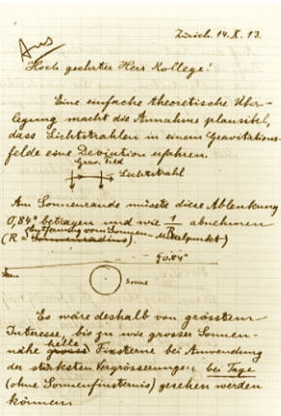 Zürich. 14. X. 13.
Hoch geehrter Herr Kollege!
Eine einfache theoretische Über-
legung macht die Annahme plausibel,
dass Lichtstrahlen in einem Gravitations-
felde eine Deviation erfahren.
Grav. Feld
Lichtstrahl
Am Sonnenrande müsste diese Ablenkung
0,84" betragen und wie 1/R abnehmen
(R = Entfernung vom Sonnen-Mittelpunkt)
0.84"
Sonne
Es wäre deshalb von grösstem
Interesse, bis zu wie grosser Sonnen-
nähe helle Fixsterne bei Anwendung
der stärksten Vergrösserungen bei Tage
(ohne Sonnenfinsternis) gesehen werden
können.